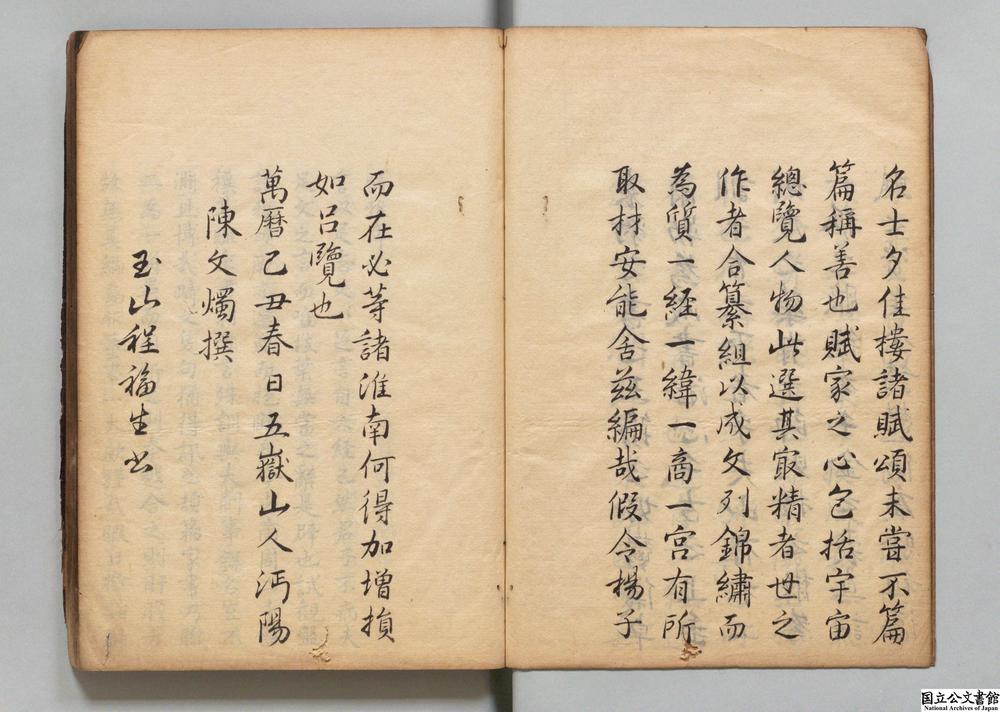 名士夕佳樓諸賦頌未嘗不篇
篇稱善也賦家之心包括宇宙
總覽人物此選其㝡精者世之
作者合纂組以成文列錦繡而
為質一經一緯一商一宮有所
取材安能舍茲編哉假令楊子
而在必等諸淮南何得加增損
如呂覽也
萬曆己丑春日五嶽山人沔陽
陳文燭撰
玉山程福生书
国立公文書館
National Archives of Japan